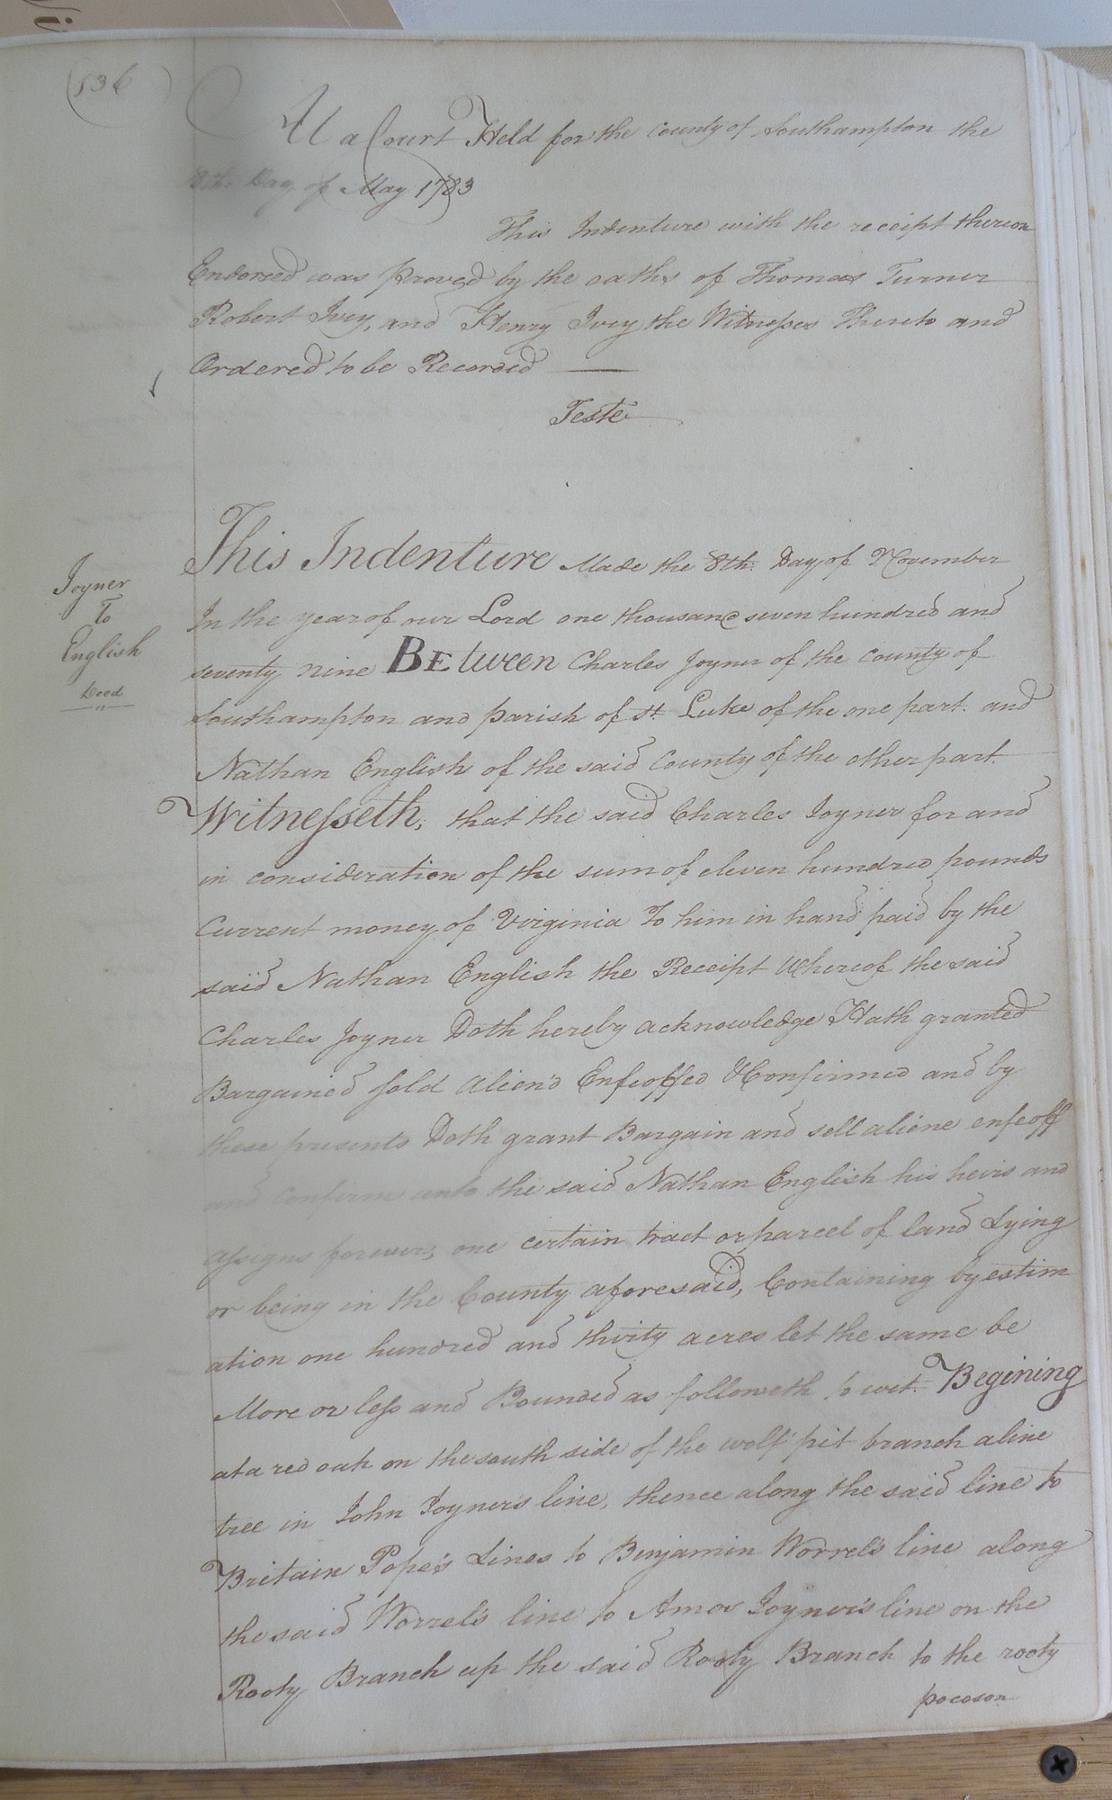 (536)
At a Court Held for the county of Southampton the
8th Day of May 1783
This Indenture with the receipt thereon
Endorsed was proved by the oaths of Thomas Turner
Robert Ivey, and Henry Ivey the Witnesses Thereto and
Ordered to be Recorded
Teste
Joyner
To
English
Deed
This Indenture Made the 8th. Day of November
In the year of our Lord one thousand seven hundred and
seventy nine BEtween Charles Joyner of the county of
Southampton and parish of St. Luke of the one part. and
Nathan English of the said County of the other part.
Witnesseth; that the said Charles Joyner for and
in consideration of the sum of eleven hundred pounds
Current money of Virginia To him in hand paid by the
said Nathan English the Receipt Whereof the said
Charles Joyner Doth hereby acknowledge Hath granted
Bargained sold Alien'd Enfeoffed & Confirmed and by
these presents Doth grant Bargain and sell aliene enfeoff
and confirm unto the said Nathan English his heirs and
assigns forever, one certain tract or parcel of land Lying
or being in the County aforesaid, Containing by estim
ation one hundred and thirty acres let the same be
More or less and Bounded as followeth to wit. Begining
at a red oak on the south side of the wolf pit branch a line
tree in John Joyner's line, thence along the said line to
Britain Pope's Lines to Benjamin Worrel's line along
the said Worrel's line to Amos Joyner's line on the
Rooty Branch up the said Rooty Branch to the rooty
pocoson